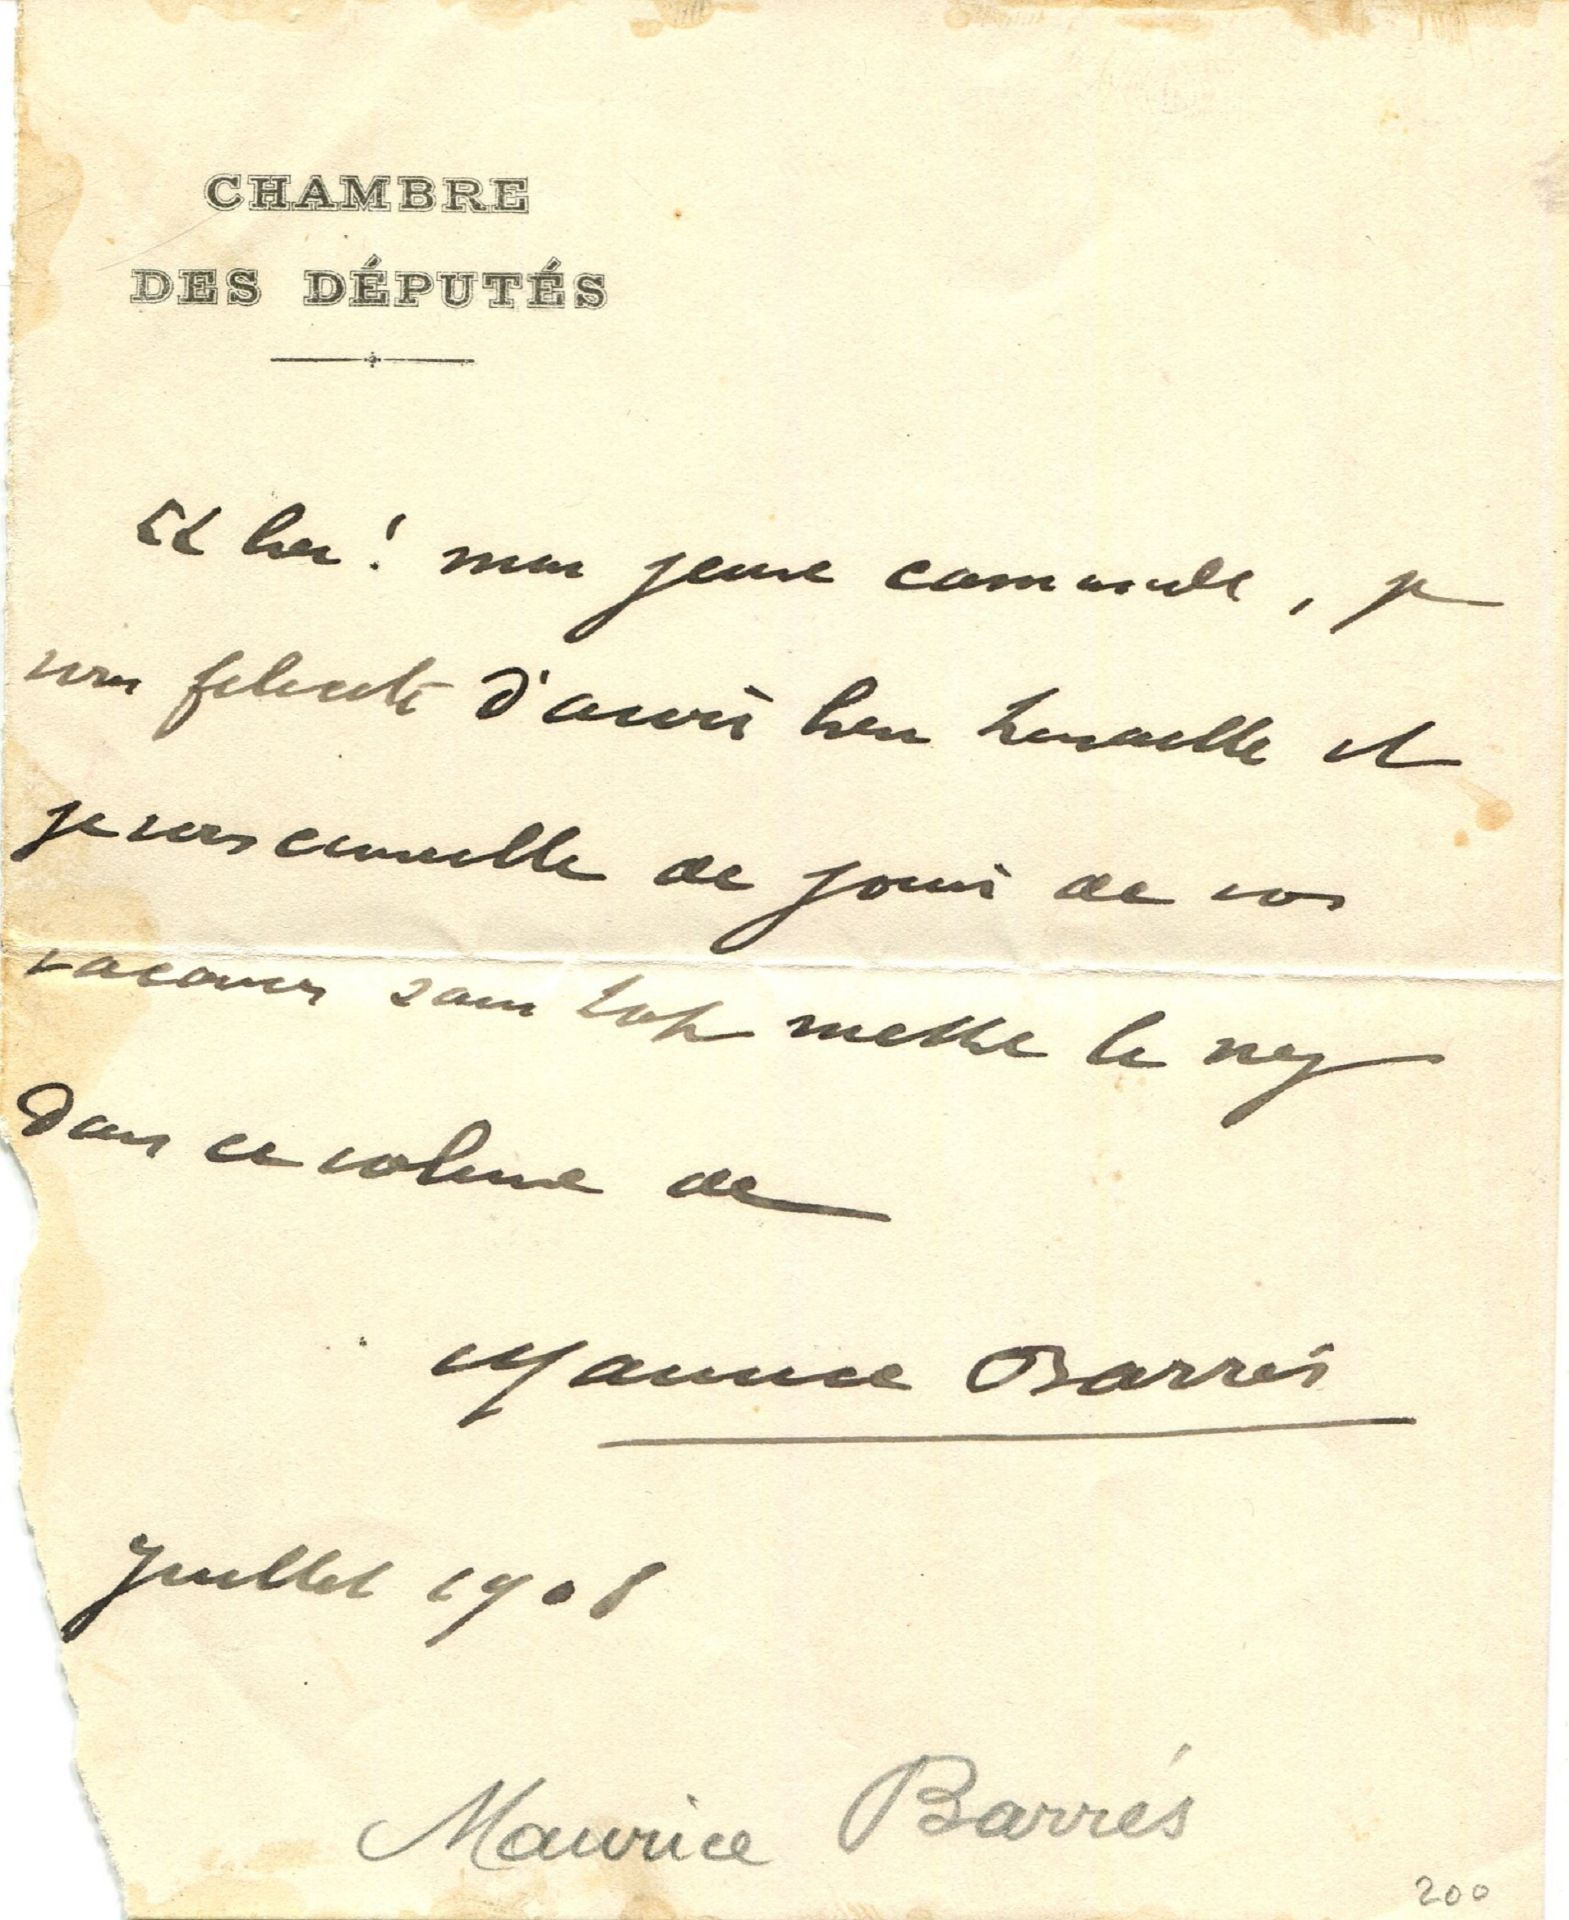 CHAMBRE
DES DÉPUTÉS
Et bien ! mon jeune camarade, je
vous félicite d'avoir bien travaillé et
je vous conseille de jouir de vos
vacances sans trop mettre le nez
dans ce volume de
Maurice Barrès
Juillet 1908
Maurice Barrés
200